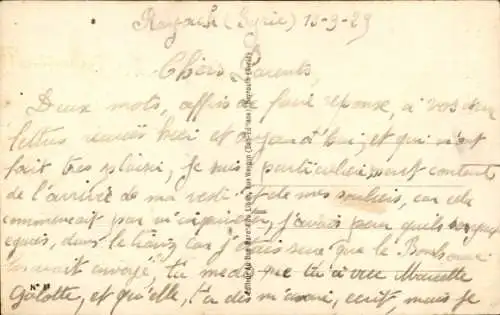 Rayack (Syrie) 13-9-29
Chers Parents,
Deux mots, affris de faire réponse, a vos deux
lettres reçues hier et aujourd'hui, et qui m'ont
fait tres plaisir, Je suis particulièrement content
de l'arrivée de ma veste et de mes souliers, car cela
commencait par m'inquieter, j'avais peur qu'ils
dans le car j'etais sure que le Bonhomme
envoyé, tu me dis que tu a vue Marcette
Galotte, et qu'elle, t'a dis m'avoir, ecrit, mais je
N° 18